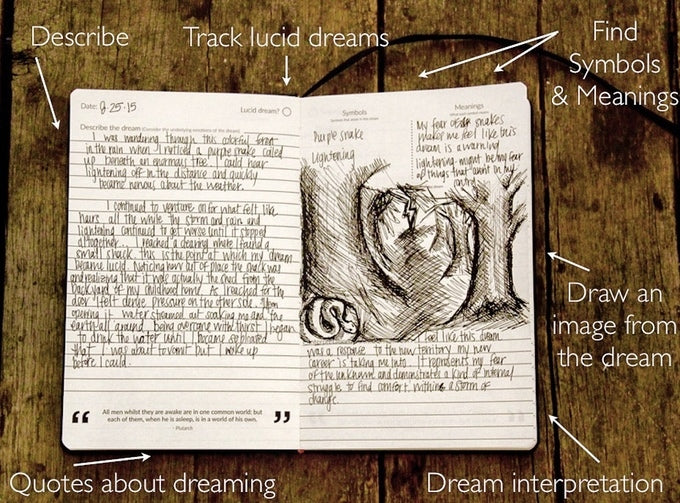 Describe
Track lucid dreams
Find
Symbols
& Meanings
Date: 8-25-15
Lucid dream?
Describe the dream (Consider the underlying emotions of the dream)
I was wandering through this colorful forest
in the rain when I noticed a purple snake coiled
up beneath an enormous tree. I could hear
lightening off in the distance and quickly
became nervous about the weather.
I continued to venture on for what felt like
hours all the while the storm and rain and
lightening continued to get worse until it stopped
altogether. I reached a clearing where I found a
small shack, this is the point at which my dream
became lucid. Noticing how out of place the shack was
and realizing that it was actually the shed from the
backyard of my childhood home. As I reached for the
door I felt dense pressure on the other side. Upon
opening it water streamed out soaking me and the
earth all around. Being overcome with thirst I began
to drink the water until I became so bloated
that I was about to vomit but I woke up
before I could.
All men whilst they are awake are in one common world; but
each of them, when he is asleep, is in a world of his own.
- Plutarch
Symbols
Purple snake
Lightening
Meanings
My fear of snakes
makes me feel like this
dream is a warning
lightening might be my fear
of things that aren't in my
control
I feel like this dream
was a response to the new territory my new
career is taking me into. It represents my fear
of the unknown and demonstrates a kind of internal
struggle to find comfort within a storm of
change.
Draw an
image from
the dream
Quotes about dreaming
Dream interpretation